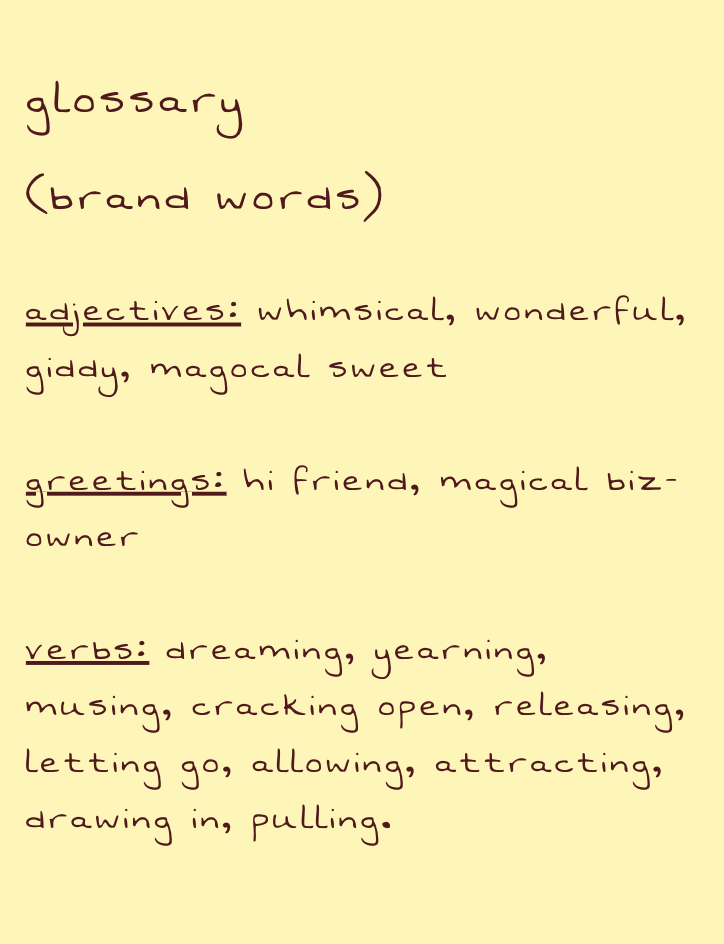 glossary
(brand words)
adjectives: whimsical, wonderful,
giddy, magocal sweet
greetings: hi friend, magical biz-
owner
verbs: dreaming, yearning,
musing, cracking open, releasing,
letting go, allowing, attracting,
drawing in, pulling.